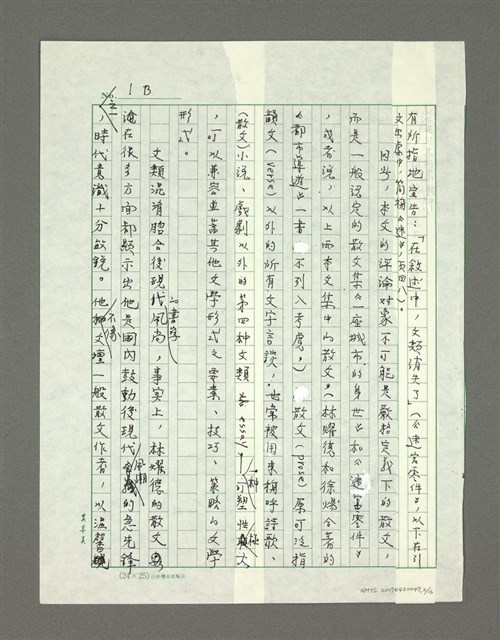 1B
No.
有所指地宣告:「在敘述中,文類消失了」(《迷宮零件》,以下在引
文出處中,簡稱《迷》,頁四八)。
因此,本文的評論对象不可能是嚴格定義下的散文,
而是一般認定的散文集《一座城市的身世》和《迷宮零件》
,或者說,以上兩本文集中的散文。(林燿德和徐煬合著的
《都市》一書不列入考慮。)散文(prose)原可泛指
韻文(verse)以外的所有文字言談,也常被用來稱呼詩歌、
(散文)小說、戲劇以外的第四種文類 essay,一種可塑性極大
,可以兼容並蓄其他文學形式之要素、技巧、策略的文學
形式。
文類混淆脗合後現代的書寫風尚,事實上,林燿德的散文
淪在很多方面都顯示出他是國內鼓動後現代風潮的急先鋒
,時代意識十分敏銳。他不像文壇一般散文作者,以溫馨
(24×25)
NMTL 20090420049